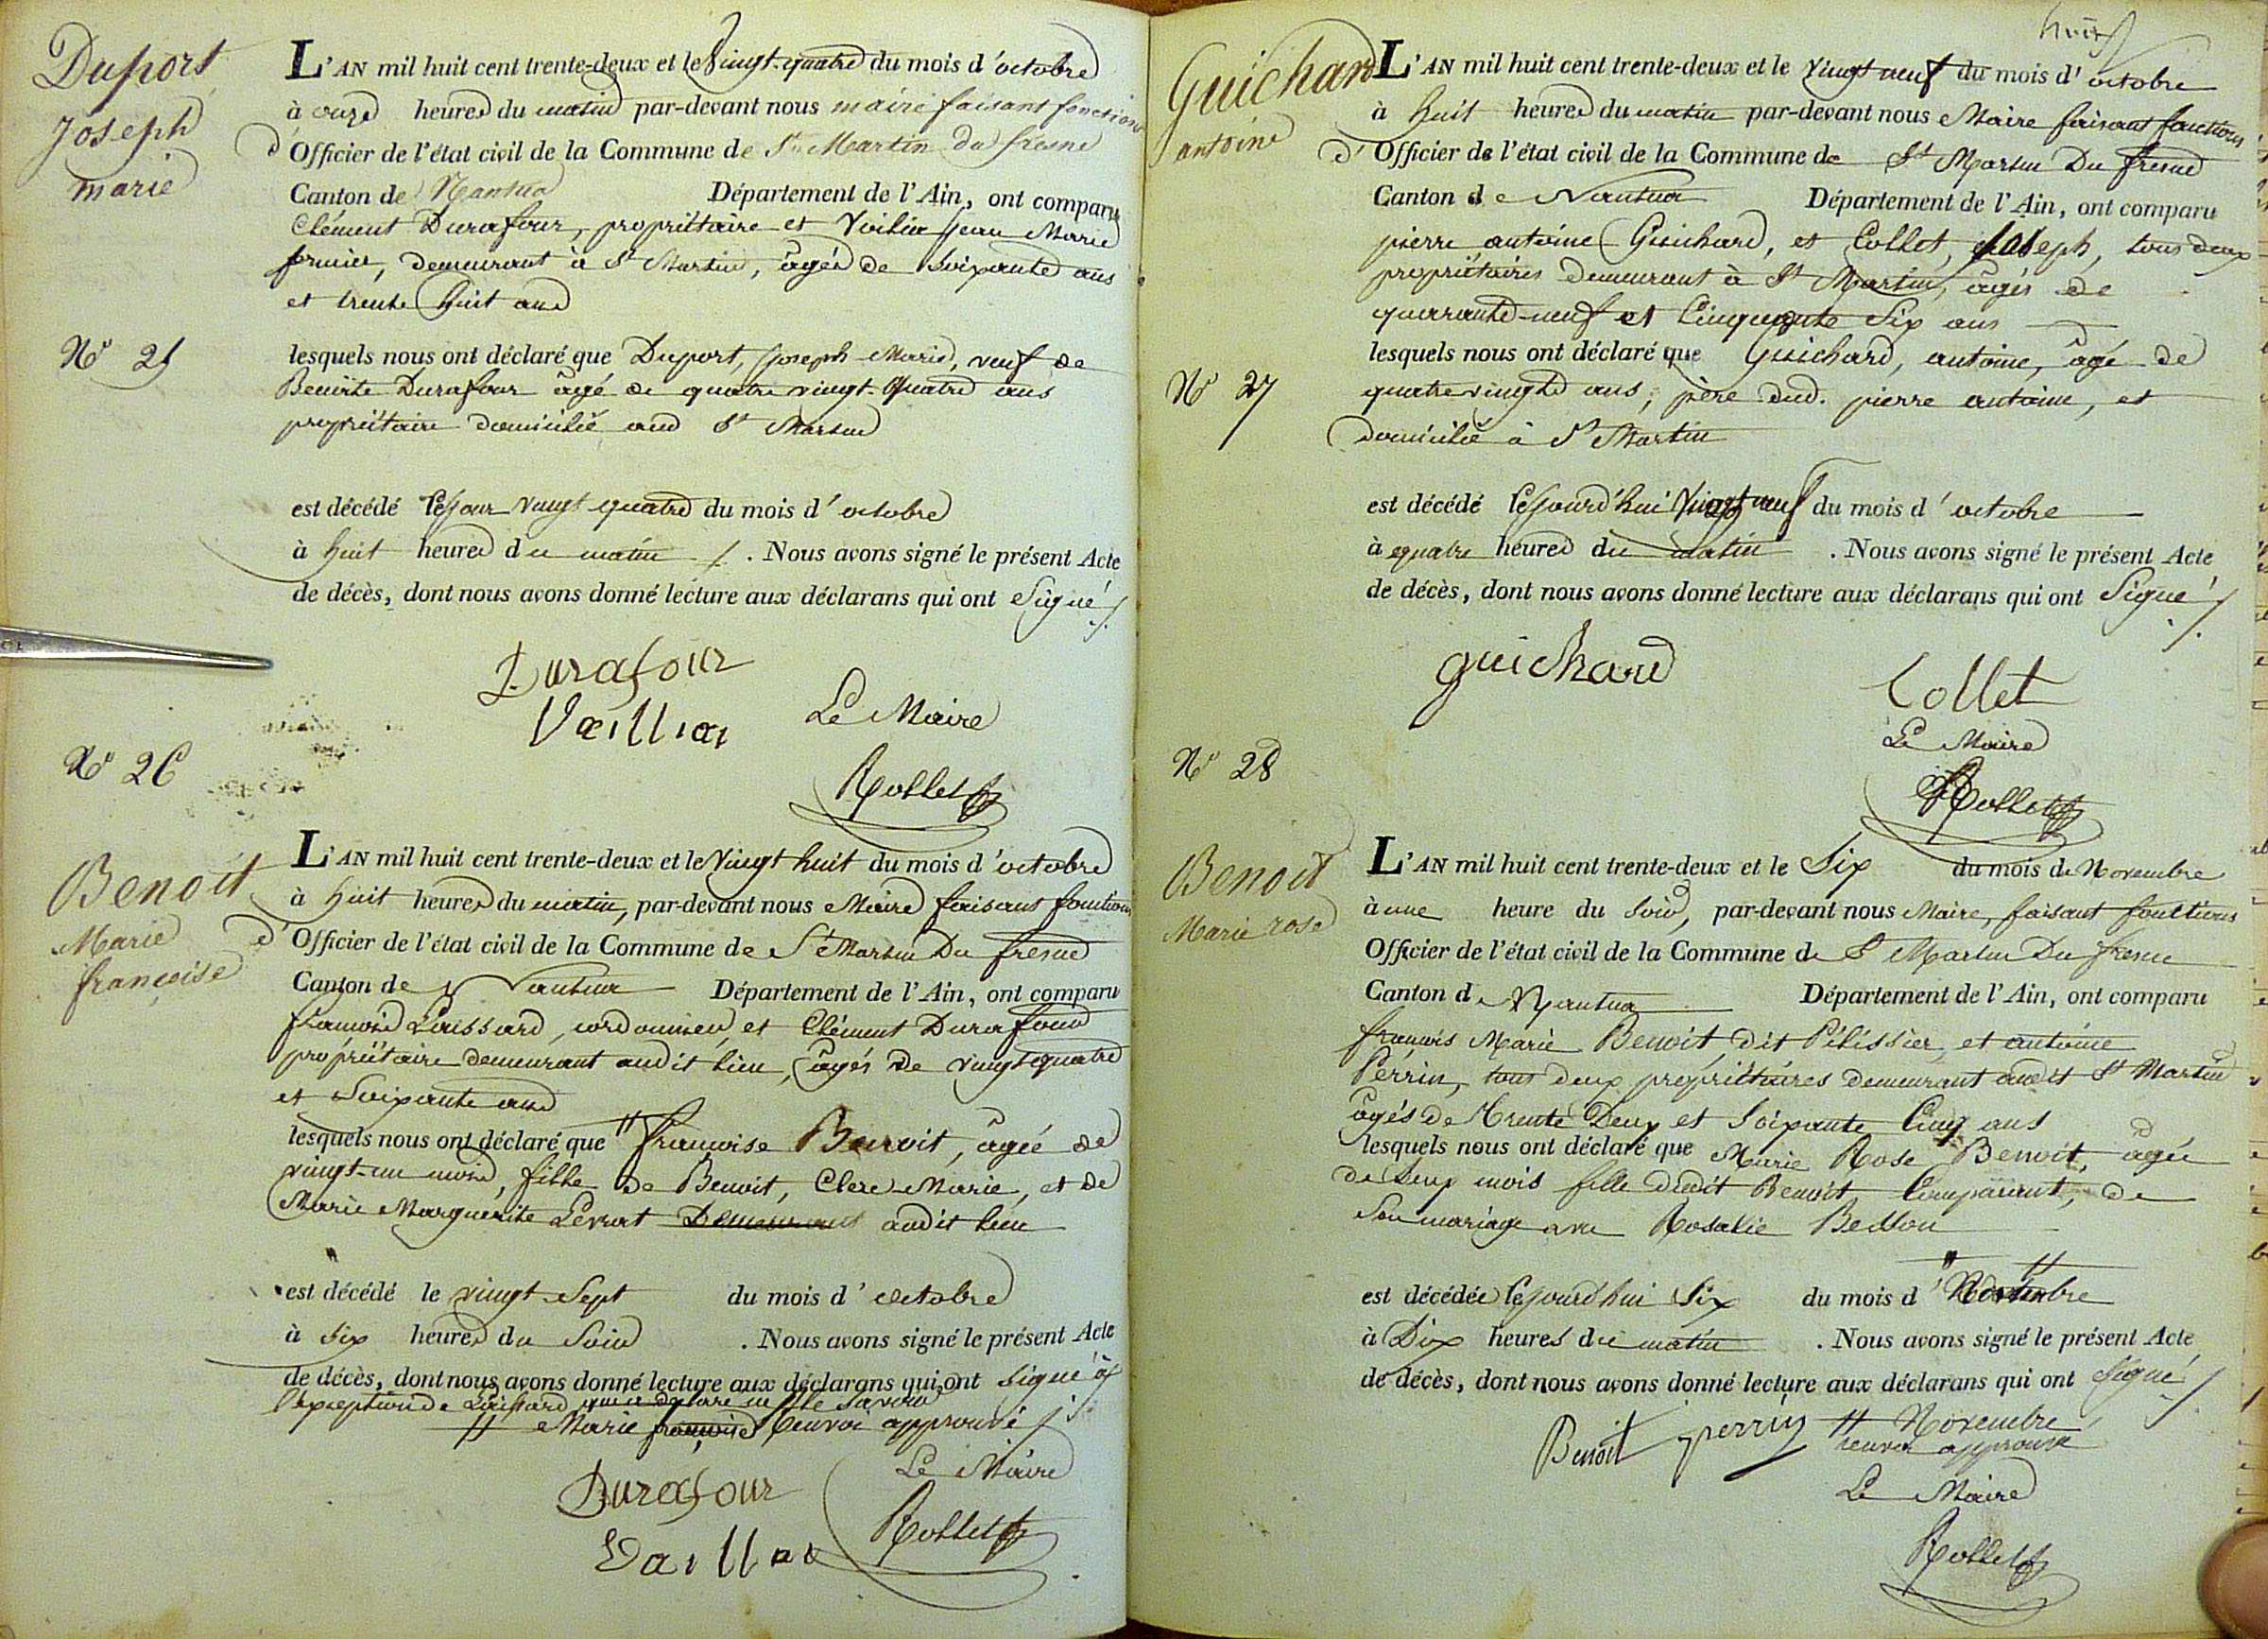 Duport
Joseph
marie
L'AN mil huit cent trente-deux et le Vingt-quatre du mois d'octobre
à onze heures du matin par-devant nous maire faisant fonctions
d'Officier de l'état civil de la Commune de St Martin du fresne
Canton de Nantua Département de l'Ain, ont comparu
Clément Durafour, propriétaire et Jean Marie
fermier, demeurant à St Martin, âgés de Soixante ans
et trente huit ans
No 25
lesquels nous ont déclaré que Duport, Joseph Marie, veuf de
Benoite Durafour âgé de quatre vingt-Quatre ans
propriétaire domicilié aud St Martin
est décédé Cejour Vingt quatre du mois d'octobre
à huit heures du matin ./. Nous avons signé le présent Acte
de décès, dont nous avons donné lecture aux déclarans qui ont Signé ./.
Durafour
Vaillia
Le Maire
Rollet
No 26
Benoit
Marie
françoise
L'AN mil huit cent trente-deux et le Vingt huit du mois d'octobre
à huit heures du matin, par-devant nous Maire faisant fonctions
d'Officier de l'état civil de la Commune de St Martin Du fresne
Canton de Nantua Département de l'Ain, ont comparu
Laissard, cordonnier, et Clément Durafour
propriétaire demeurant audit lieu, âgés de vingt quatre
et Soixante ans
lesquels nous ont déclaré que // françoise Benoit, âgée de
vingt-un mois, fille de Benoit, Clere Marie, et de
Marie Marguerite Levrat Demeurant audit lieu
est décédé le vingt Sept du mois d'octobre
à Six heures du Soir . Nous avons signé le présent Acte
de décès, dont nous avons donné lecture aux déclarans qui ont Signé à
l'exception de Laissard qui a déclaré ne le savoir ./.
// Marie françoise renvoi approuvé ./.
Durafour
Le Maire
Vaillia
Rollet
huit
Guichard
antoine
L'AN mil huit cent trente-deux et le Vingt neuf du mois d'octobre
à huit heures du matin par-devant nous Maire faisant fonctions
d'Officier de l'état civil de la Commune de St Martin Du fresne
Canton de Nantua Département de l'Ain, ont comparu
pierre antoine Guichard, et Collet, Joseph, tous deux
propriétaires demeurant à St Martin, âgés de
quarante-neuf et Cinquante Six ans
No 27
lesquels nous ont déclaré que Guichard, antoine, âgé de
quatre vingts ans, père dud. pierre antoine, et
domicilié à St Martin
est décédé Cejourd'hui Vingt neuf du mois d'octobre
à quatre heures du matin . Nous avons signé le présent Acte
de décès, dont nous avons donné lecture aux déclarans qui ont Signé ./.
guichard
Collet
Le Maire
Rollet
No 28
Benoit
Marie rose
L'AN mil huit cent trente-deux et le Six du mois de Novembre
à une heure du Soir, par-devant nous Maire, faisant fonctions
Officier de l'état civil de la Commune de St Martin Du fresne
Canton de Nantua Département de l'Ain, ont comparu
françois Marie Benoit dit Pélissier, et antoine
Perrin, tous deux propriétaires demeurant audit St Martin
âgés de Trente Deux et Soixante Cinq ans
lesquels nous ont déclaré que Marie Rose Benoit, âgée
de deux mois fille dudit Benoit Comparant, de
Son mariage avec Rosalie
est décédée Cejourd'hui Six du mois d' //
à Dix heures du matin . Nous avons signé le présent Acte
de décès, dont nous avons donné lecture aux déclarans qui ont Signé ./.
Benoit perrin // Novembre
renvoi approuvé
Le Maire
Rollet